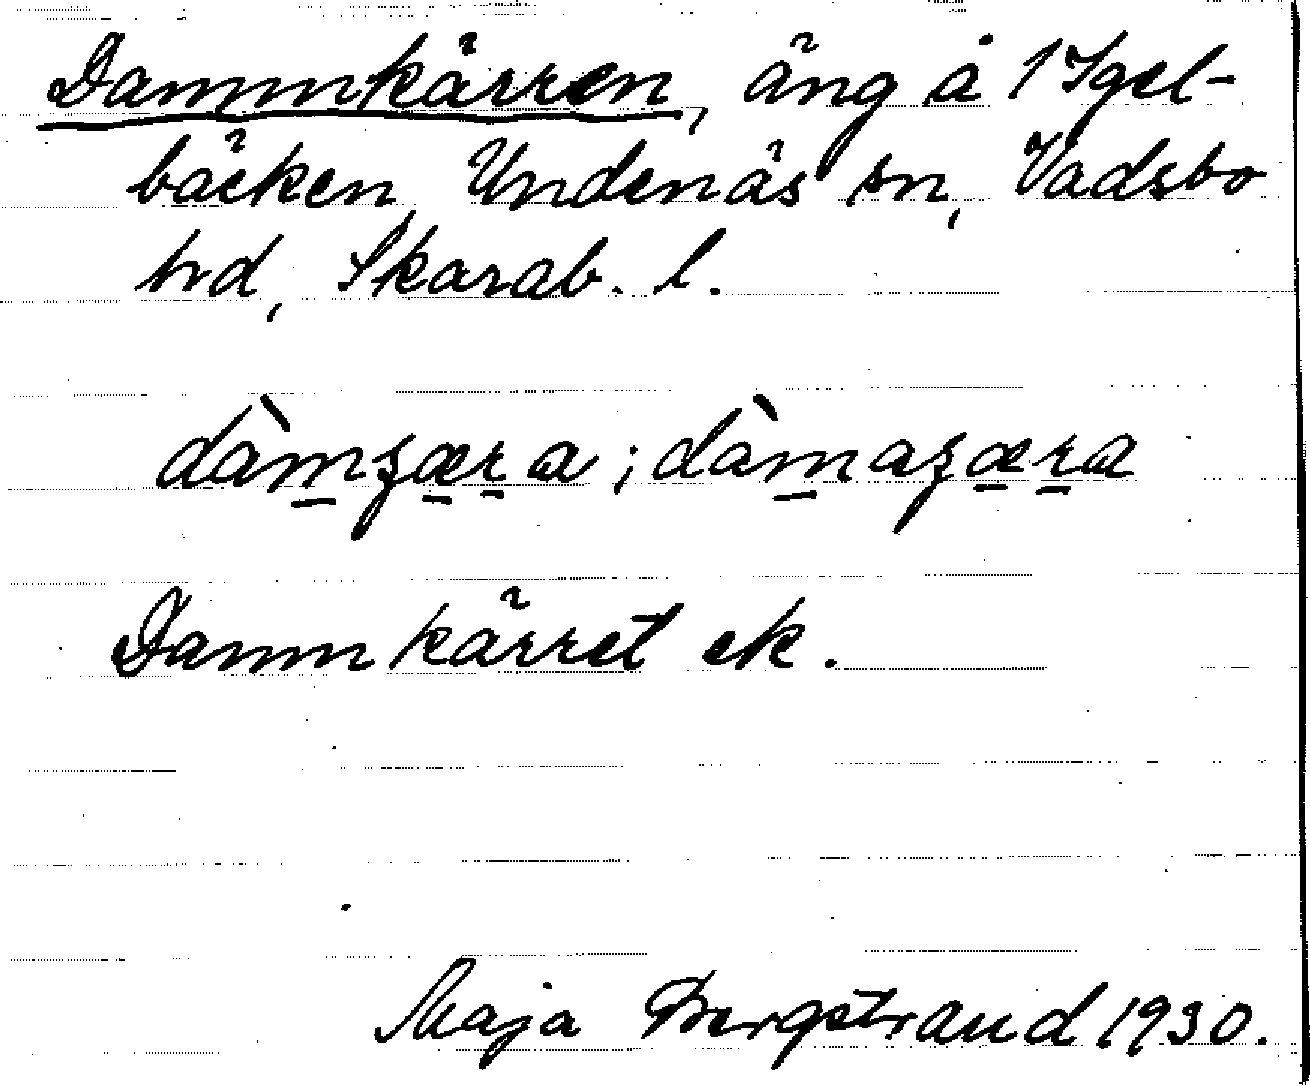 Dammkärren, äng å 1 Igel-
bäcken, Undenäs sn, Vadsbo
hd, Skarab. l.
dàm̲ʒæ̲r̲a ; dàm̲aʒæ̲r̲a
Dammkärret ek.
Maja Bergstrand 1930.